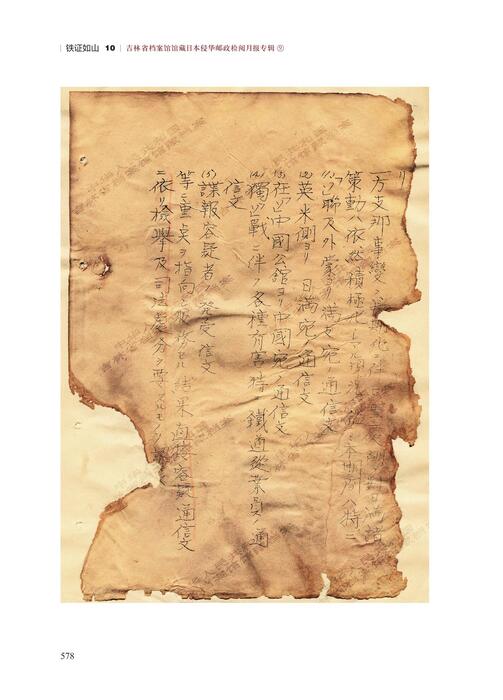 铁证如山 10 吉林省档案馆馆藏日本侵华邮政检阅月报专辑⑨
リ
一方支那事變
策動ハ依然積極化 本期間ハ特ニ
(1)ソ聯及外蒙ヨリ満支宛ノ通信文
(2)英米側ヨリ日満宛ノ通信文
(3)在ソ中國公館ヨリ中國宛ノ通信文
(4)獨ソ戰ニ伴ノ各種有害特ニ鐵道從業員ノ通
信文
(5)諜報容疑者ノ發受信文
等ニ重点ヲ指向シ 結果直接容疑通信文
ニ依リ檢擧及司法處分ヲ要スルモノ
578